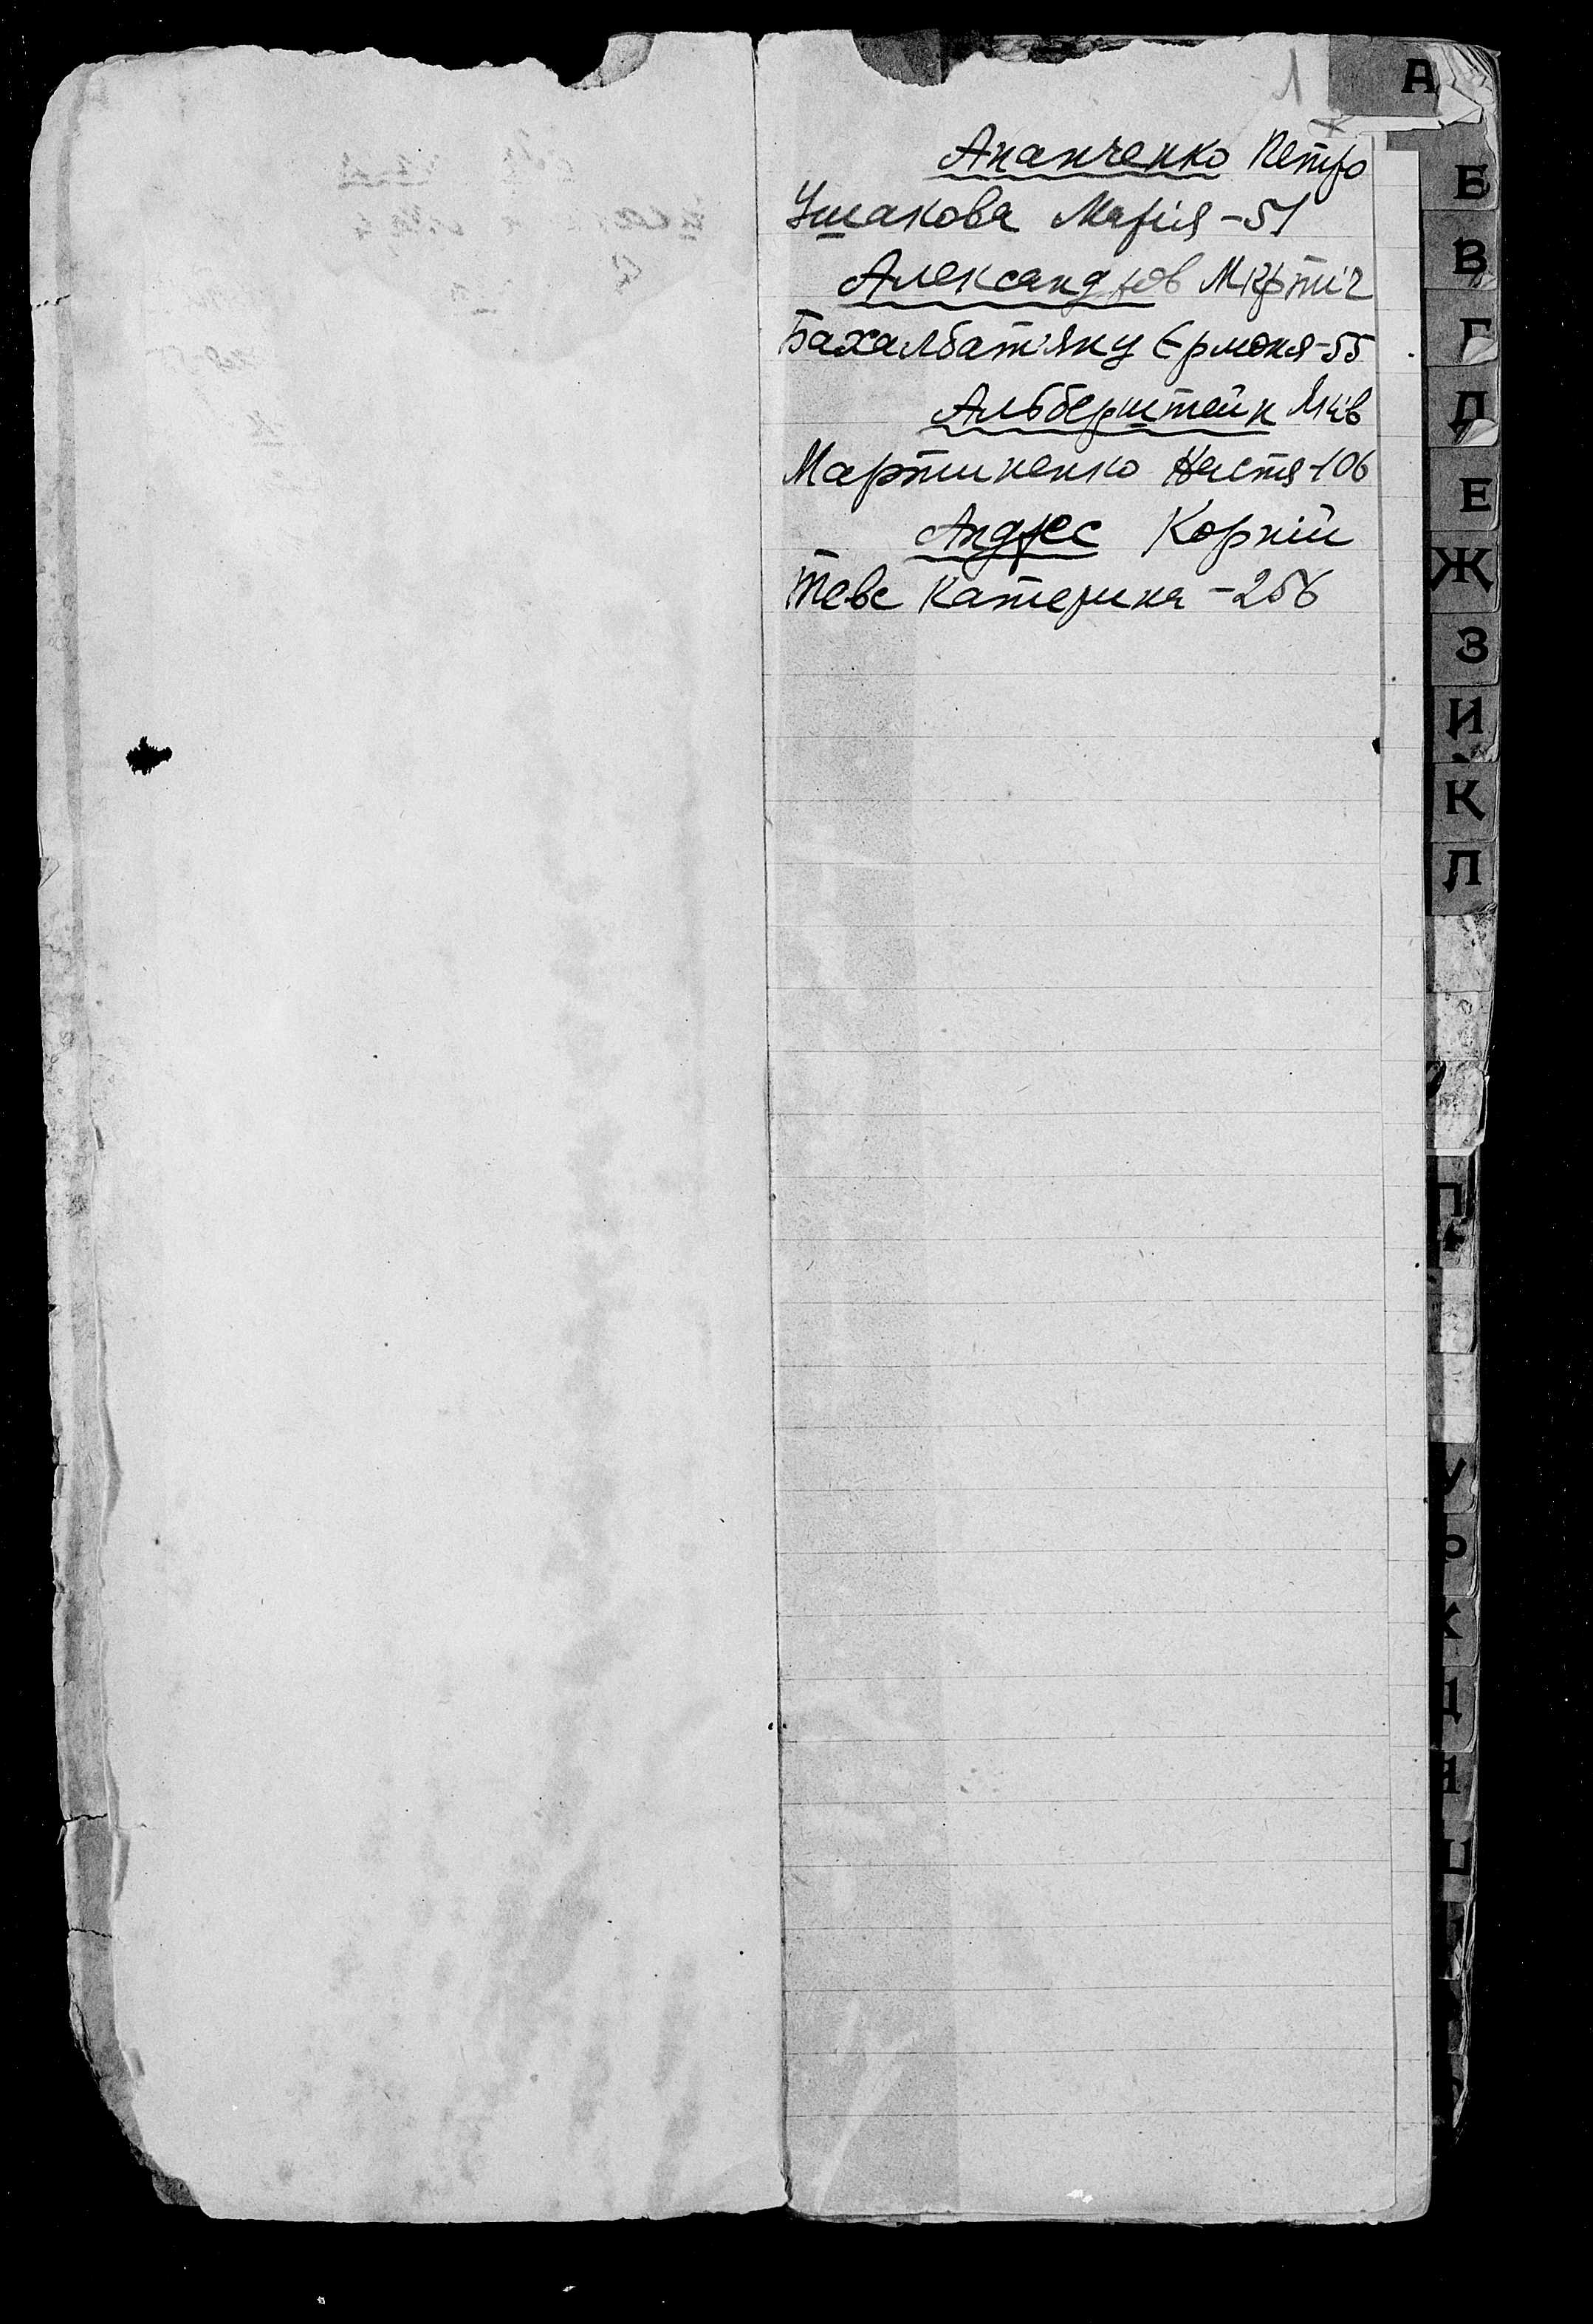 1
А
Ананченко Петро
Ушакова Марія - 51
Александров Мкртіч
Бахалбатʼянц Єрмоня - 55
Альберштейн Яків
Мартиненко Настя - 106
Андрес Корній
Тевс Катерина - 256
Б
В
Г
Д
Е
Ж
З
И
К
Л
П
У